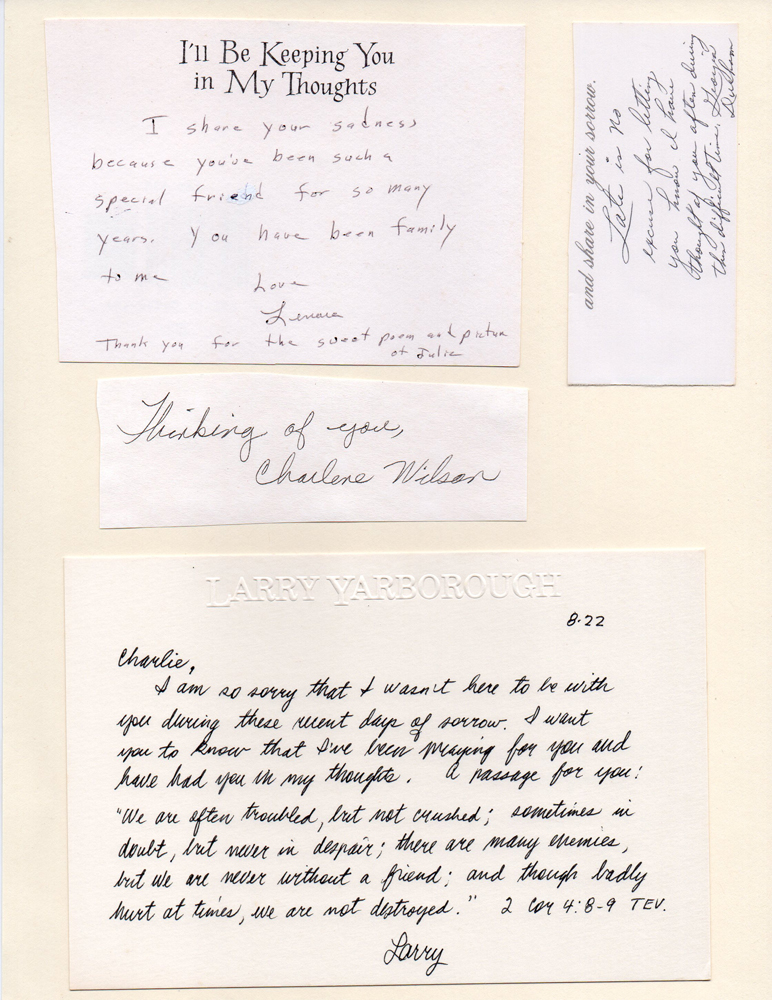 I'll Be Keeping You
in My Thoughts
I share your sadness
because you've been such a
special friend for so many
years. You have been family
to me
Love
Lenora
Thank you for the sweet poem and picture
of Julie
and share in your sorrow.
Late is no
excuse for letting
you know I have
thought of you often during
this difficult time. Georgia
Durham
Thinking of you,
Charlene Wilson
LARRY YARBOROUGH
8·22
Charlie,
I am so sorry that I wasn't here to be with
you during these recent days of sorrow. I want
you to know that I've been praying for you and
have had you in my thoughts. A passage for you:
"We are often troubled, but not crushed; sometimes in
doubt, but never in despair; there are many enemies,
but we are never without a friend; and though badly
hurt at times, we are not destroyed." 2 Cor 4:8-9 TEV.
Larry